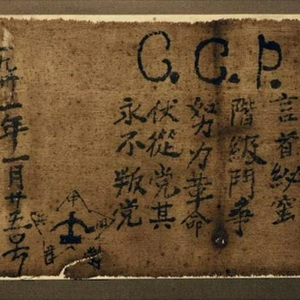 C.C.P.
言首秘蜜
階級鬥争
努力革命
伏從党其
永不叛党
一九卅一年一月廿五号